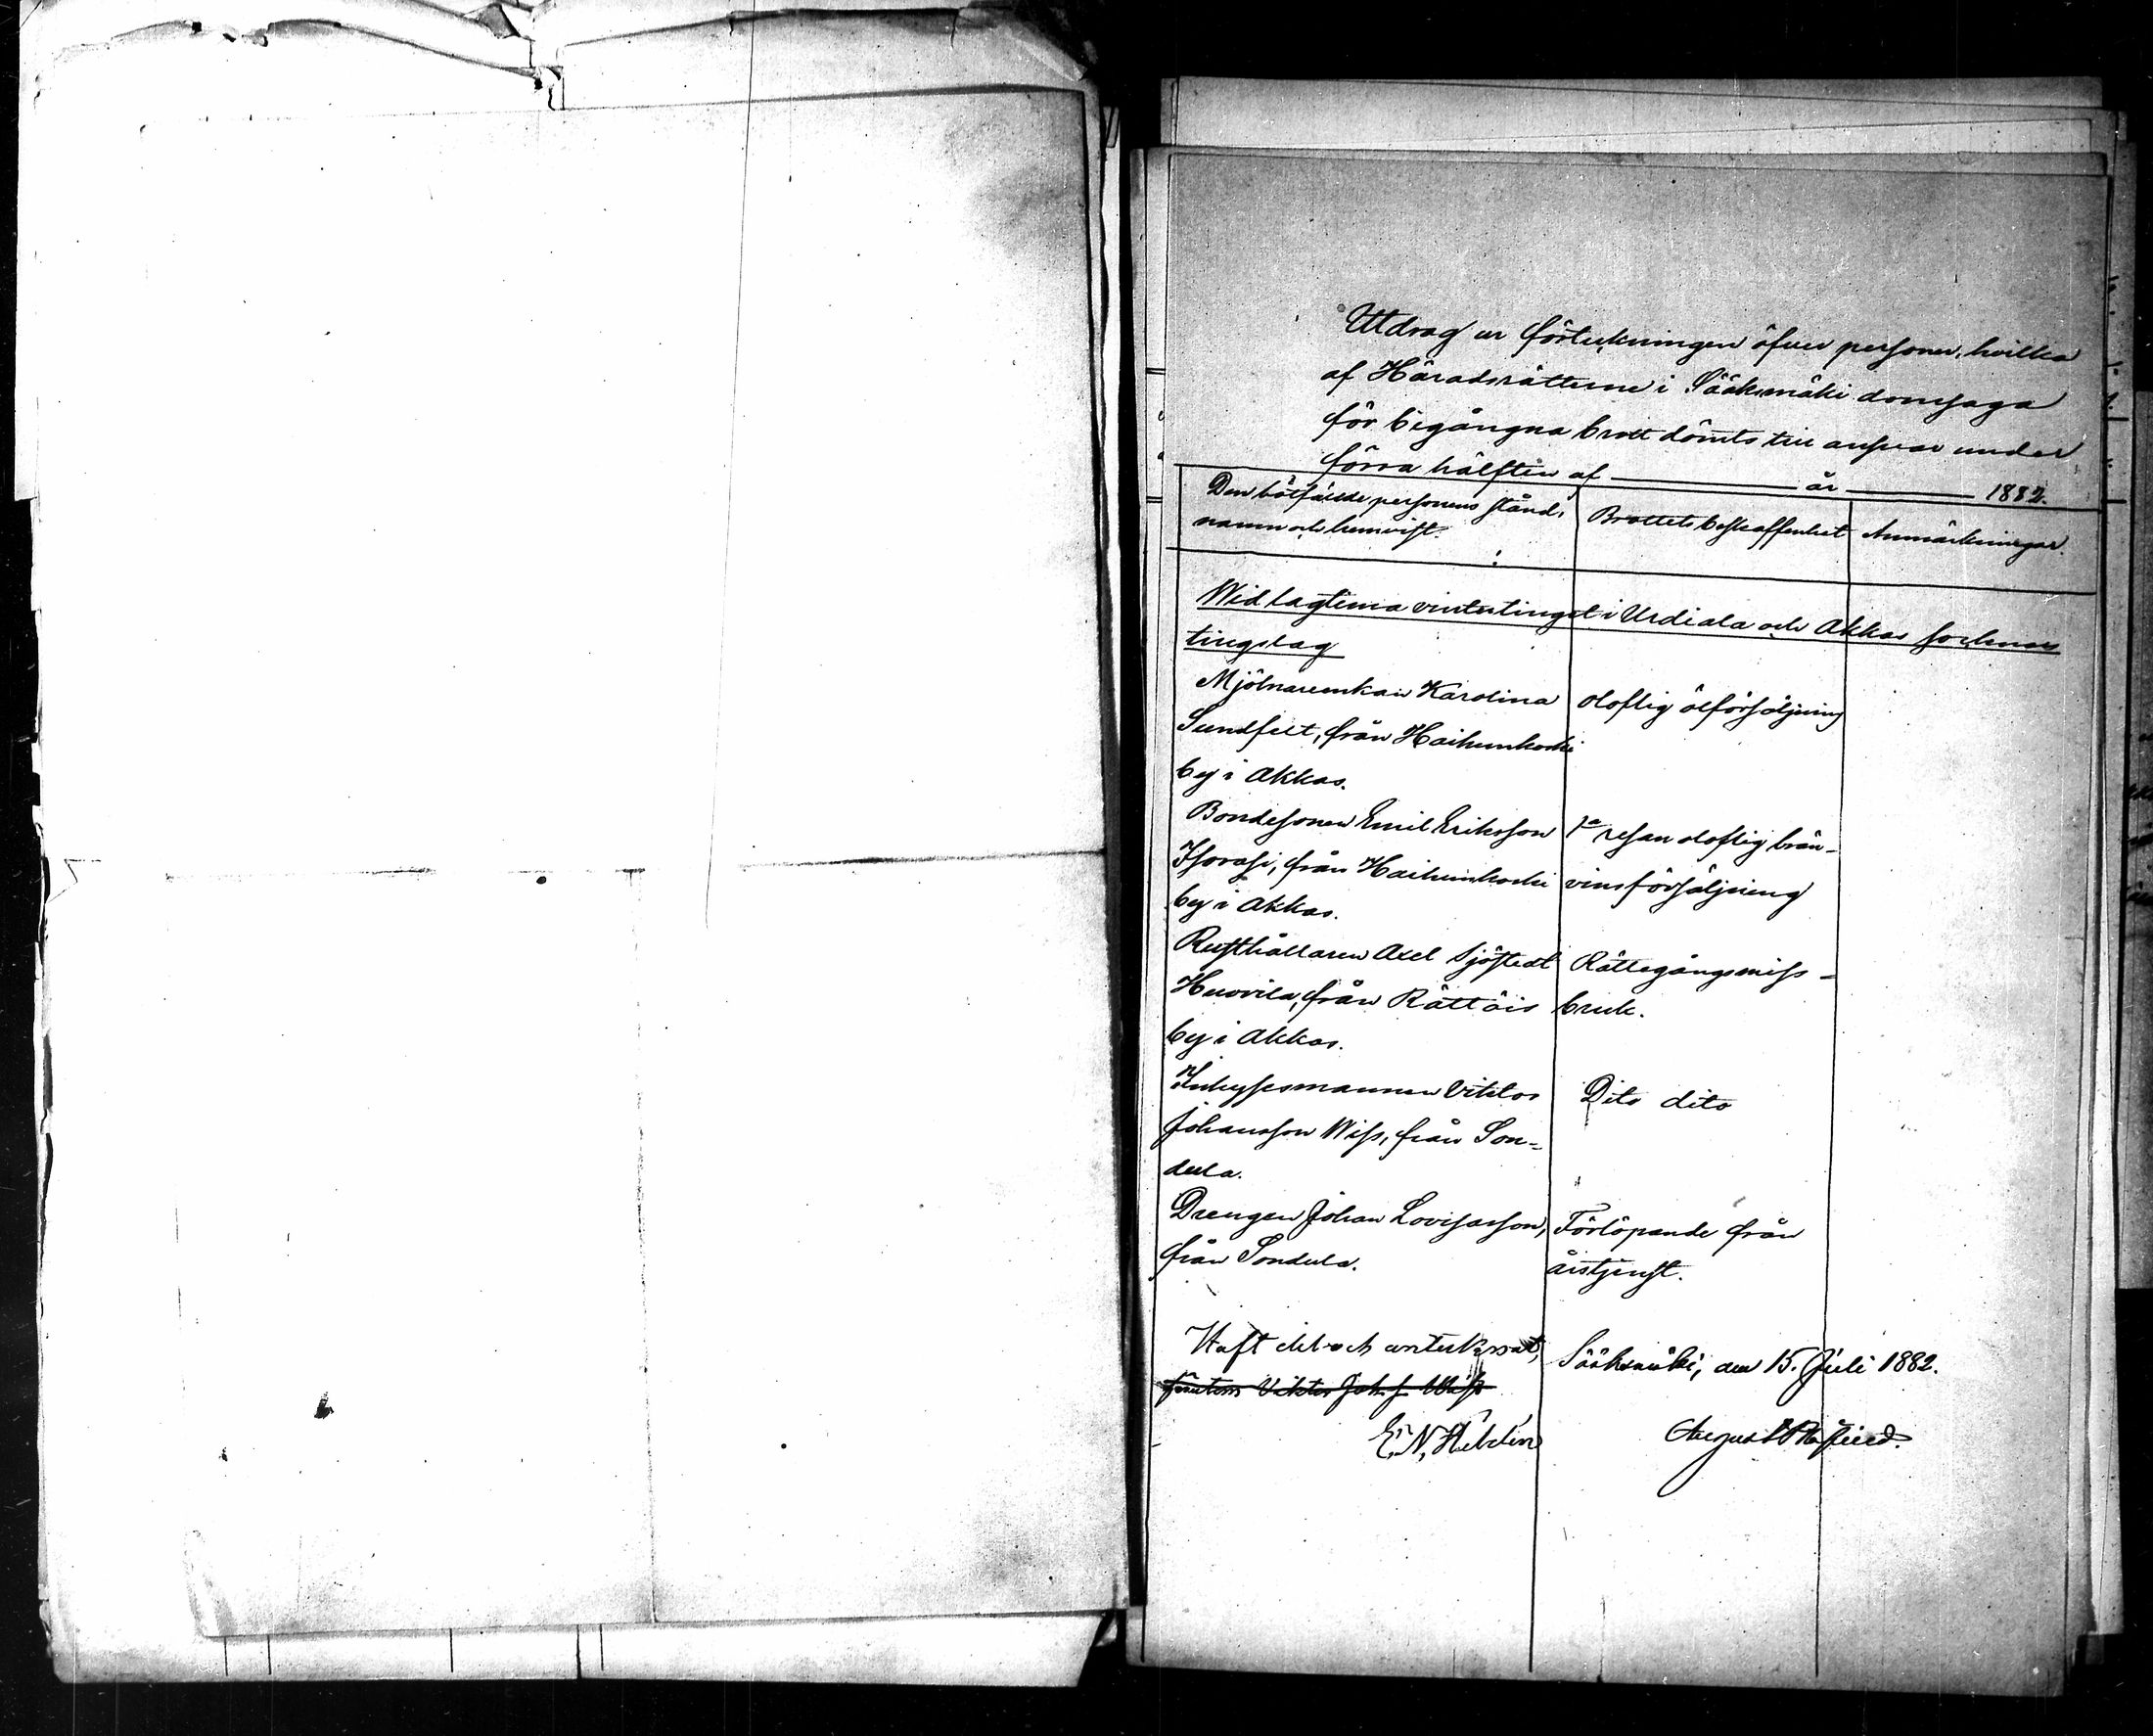 Utdrag ur förteckningen öfver personer, hvilka
af Häradsrätterne i Sääksmäki domsaga
för begångna brott dömts till ansvar under
förra hälften af år 1882.
Den bötfällde personens stånd, namn och hemvist.
Brottets beskaffenhet
Anmärkningar.
Wid lagtima vintertinget i Urdiala och Akkas socknars
tingslag
Mjölnareenkan Karolina oloflig ölförsäljning
Sundfelt, från Haihunkoski
by i Akkas.
Bondesonen Emil Eriksson 1a resan oloflig brän-
Isorasi, från Haihunkoski vinsförsäljning
by i Akkas.
Rusthållaren Axel Sjöstedt Rättegångsmiss-
Huovila, från Rättöis bruk.
by i Akkas.
Inhysesmannen Viktor Dito dito
Johansson Wiss, från Son-
dula.
Drengen Johan Lovisasson, Förlöpande från
från Sondula. årstjenst.
Haft del och antecknat, Sääksmäki, den 15. Juli 1882.
förutom Viktor Joh. s. Wiss
E. N.
August